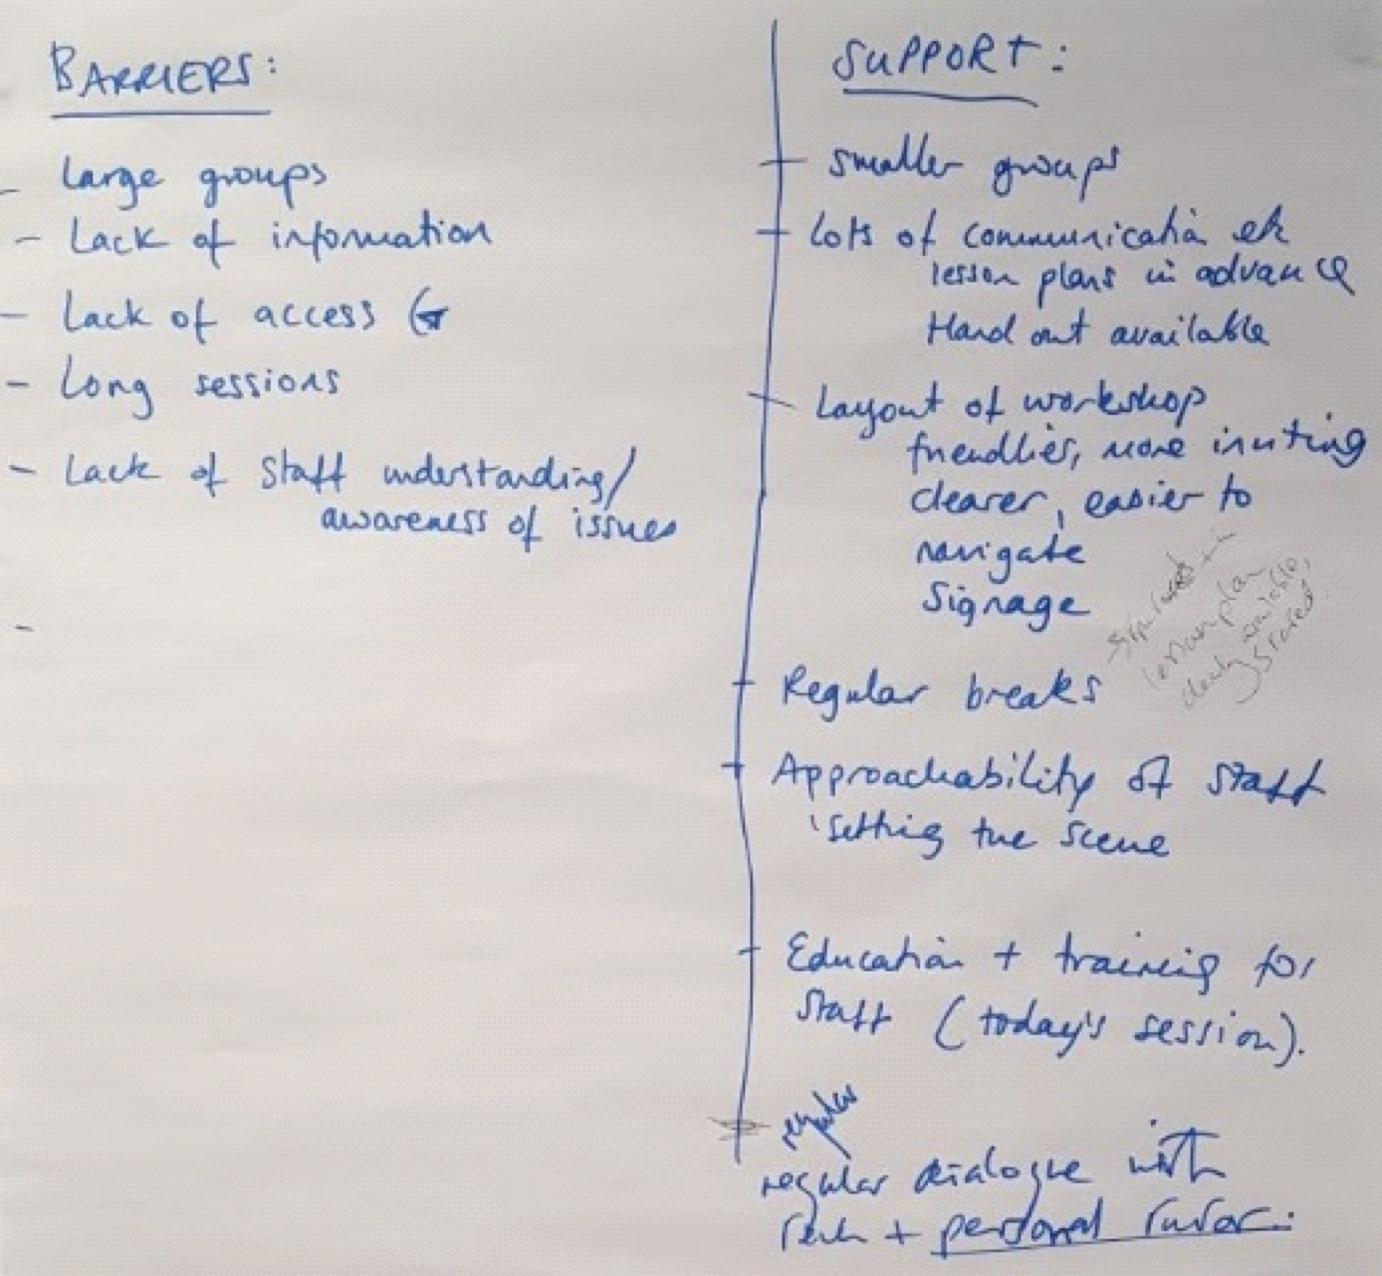 BARRIERS:
Large groups
- Lack of information
- Lack of access
- Long sessions
- Lack of Staff understanding/
awareness of issues
-
SUPPORT:
- smaller groups
- Lots of communication etc
lesson plans in advance
Hand out available
- Layout of workshop
friendlier, more inviting
clearer, easier to
navigate
Signage
lesson plan
available,
shared
- Regular breaks
- Approachability of Staff
'setting the scene
- Education + training for
Staff (today's session).
regular
regular dialogue with
+ personal tutor.